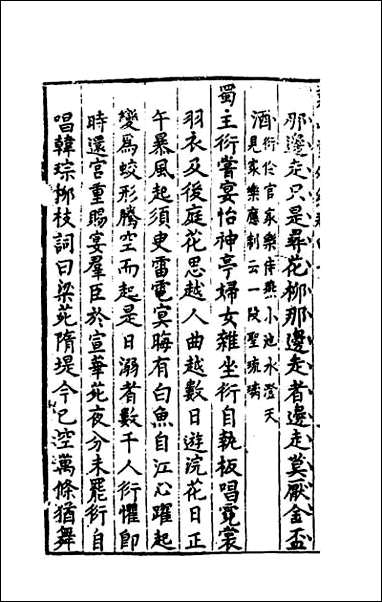 那邊走只是尋花柳那邊走者邊走莫厭金盃
酒衍伶官家樂侍燕小池水澄天
見家樂應制云一段聖琉璃
蜀主衍嘗宴怡神亭婦女雜坐衍自執板唱霓裳
羽衣及後庭花思越人曲越數日遊浣花日正
午暴風起須史雷電寞晦有白魚自江心躍起
變爲蛟形騰空而起是日溺者數千人衍懼即
時還宮重賜宴羣臣於宣華苑夜分未罷衍自
唱韓琮栁枝詞曰梁苑隋堤今已空萬條猶舞